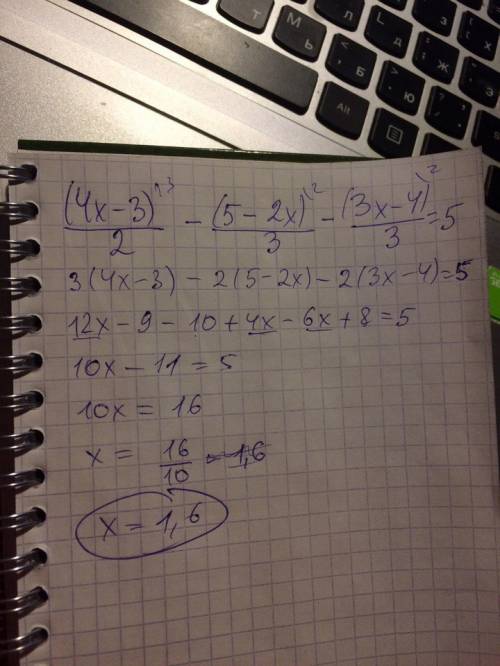 Alt
(4x-3)^3/2 - (5-2x)^2/3 - (3x-4)^2/3 = 5
3(4x-3) - 2(5-2x) - 2(3x-4) = 5
12x - 9 - 10 + 4x - 6x + 8 = 5
10x - 11 = 5
10x = 16
x = 16/10 = 1,6
x = 1,6